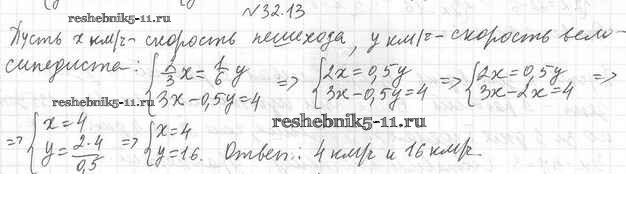 №32.13
reshebnik5-11.ru
Пусть x км/ч – скорость пешехода, y км/ч – скорость вело-
сипедиста: { 2/3 x = 1/6 y ; 3x – 0,5y = 4 => { 2x = 0,5y ; 3x – 0,5y = 4 => { 2x = 0,5y ; 3x – 2x = 4 =>
reshebnik5-11.ru
reshebnik5-11.ru
=> { x = 4 ; y = 2·4/0,5 => { x = 4 ; y = 16. Ответ: 4 км/ч и 16 км/ч.